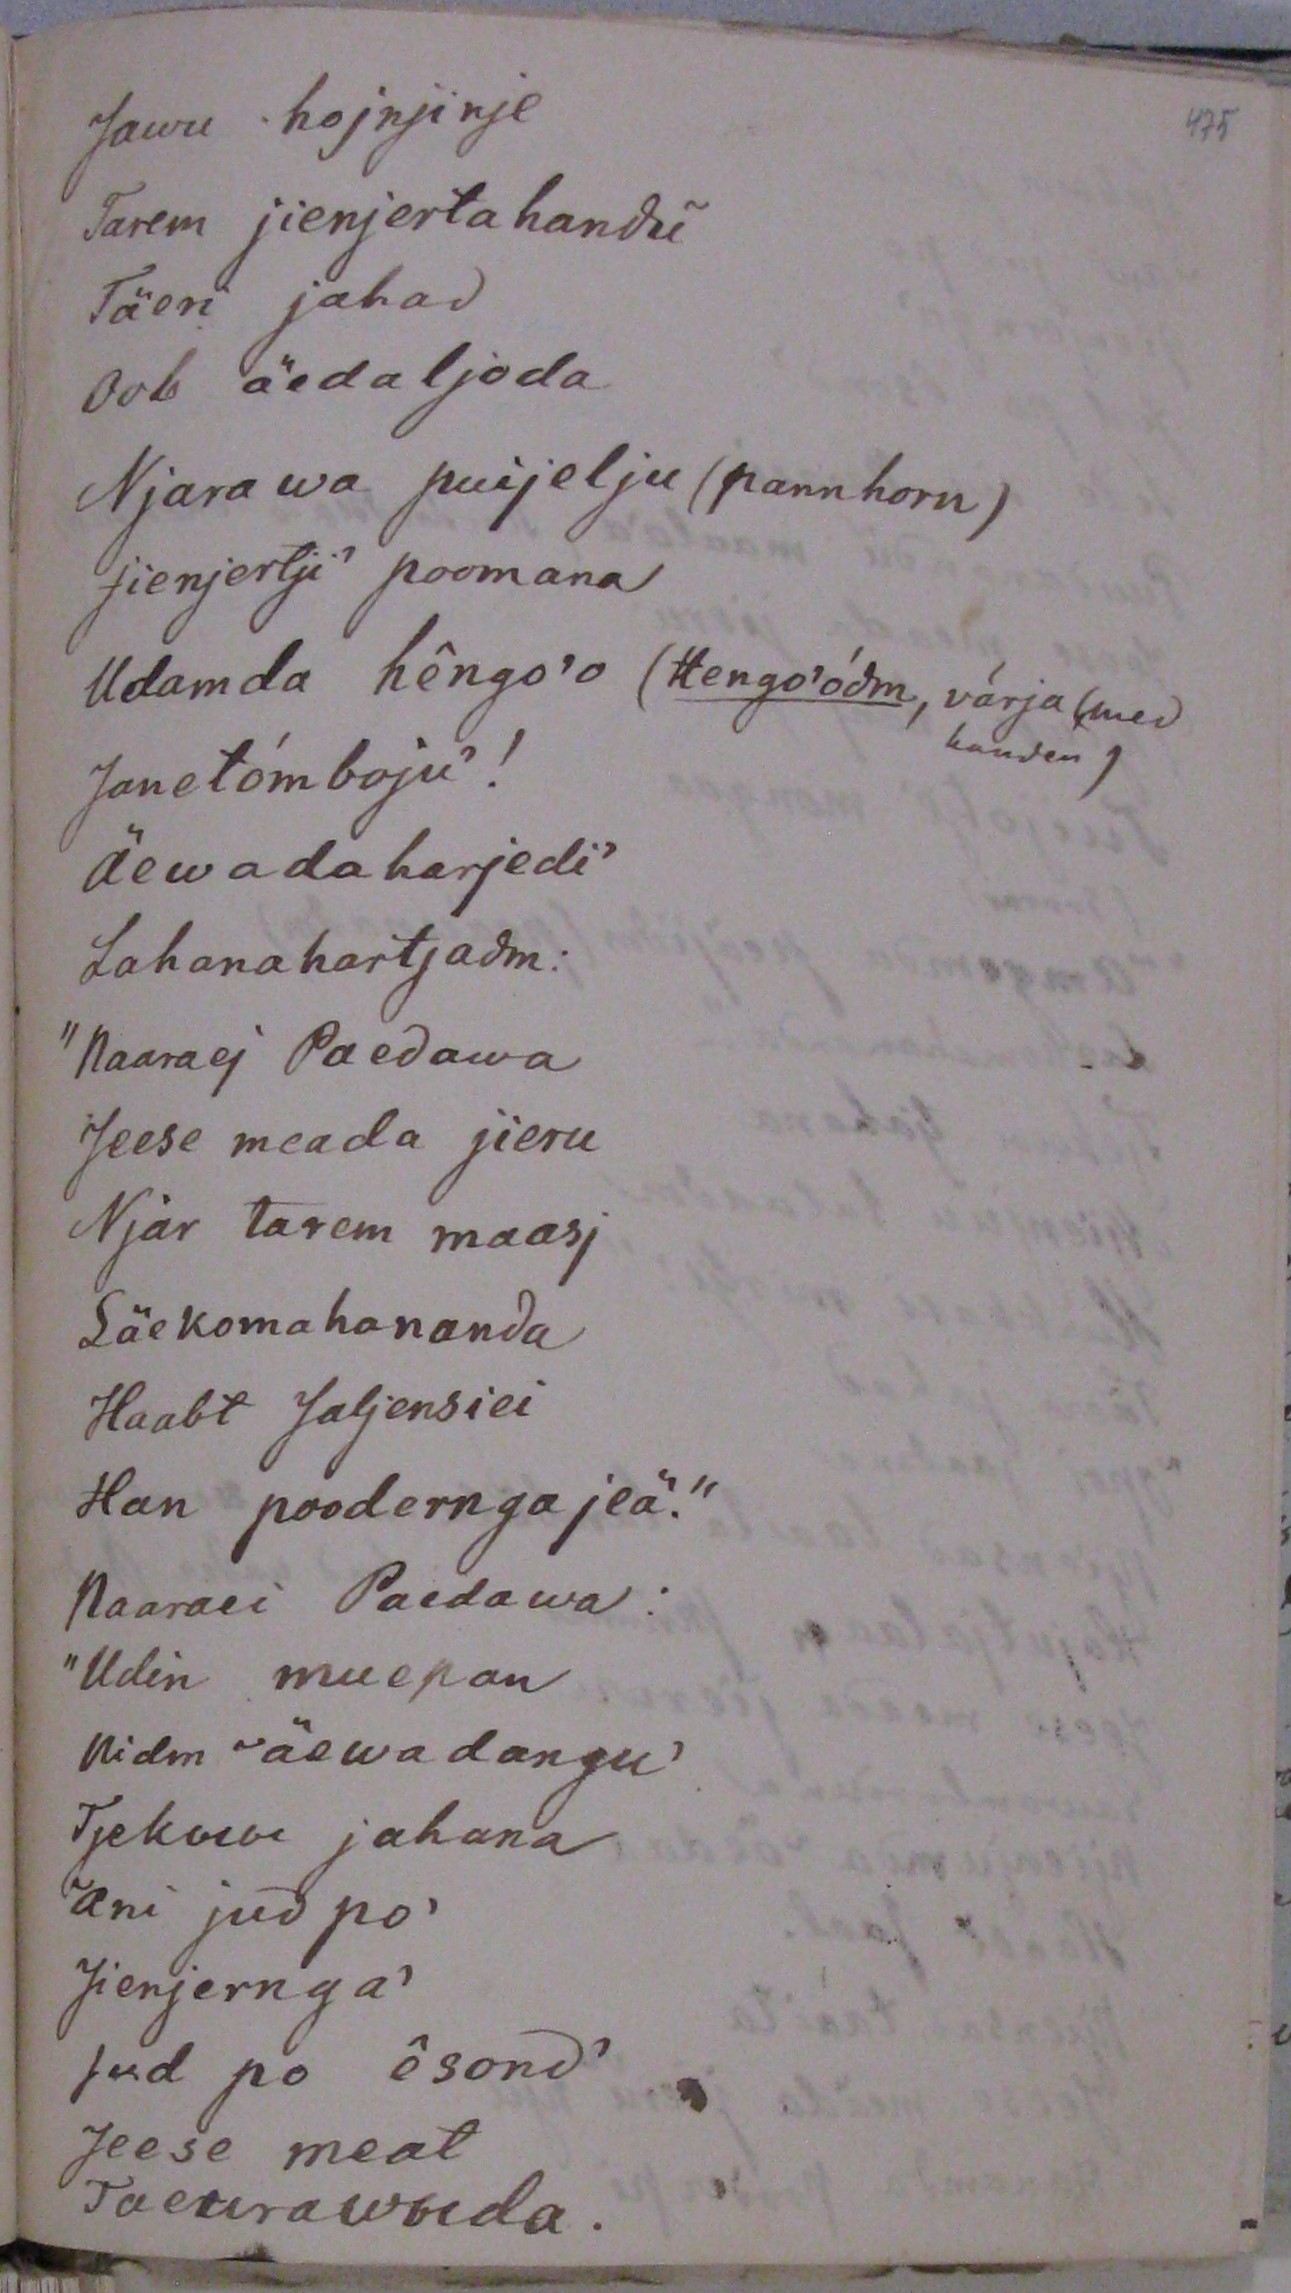 475
Jawu hojnjinje
Tarem jienjertahandũ
Täeri jahad
Oob äedaljoda
Njarawa puijelju (pannhorn)
jienjertji' poomana
Udamda hêngo'o (Hengo'ódm, värja (med
handen)
Janetómboju'!
Äewadaharjedi'
Lahanahartjadm:
"Naaraej Paedawa
Jeese meada jieru
Njar tarem maasj
Läekomahananda
Haabt Jaljensiei
Han poodernga jeä."
Naaraei Paedawa:
"Udin muepan
Nidm äewadangu'
Tjekuwe jahana
Ani jud po'
Jienjernga'
Jud po êsond'
Jeese meat
Taeurawuda.